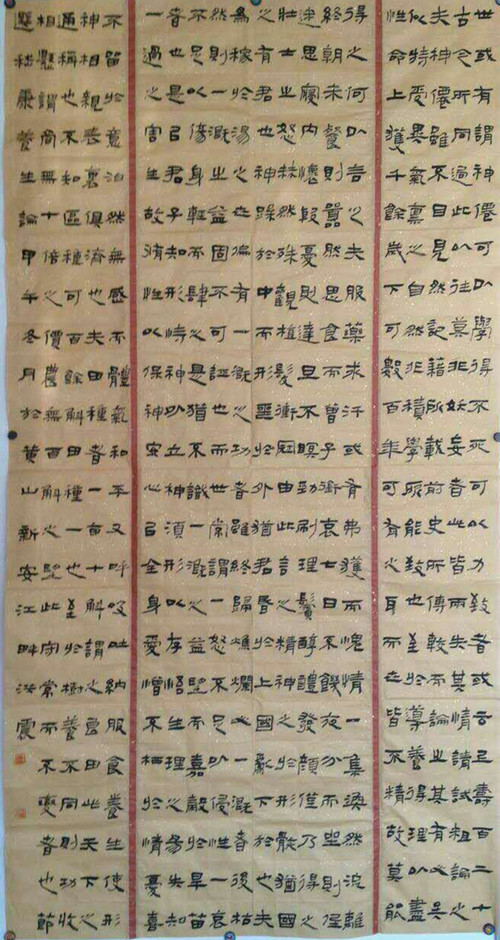 世或有謂神僊可以學得不死可以力致者或云上壽百二十
古今所同過此以往莫非妖妄者此皆兩失其情請試粗論之
夫神僊雖不目見然記籍所載前史所傳較而論之其有必矣
似特受異氣稟之自然非積學所能致也至於導養得理以盡
性命上獲千餘歲下可數百年可有之耳而世皆不精故莫能
得之何以言之夫服藥求汗或有弗獲而愧情一集渙然流離
終朝未餐則囂然思食而曾子銜哀七日不飢夜分而坐則低
迷思寢內懷殷憂則達旦不瞑勁刷理鬢醇醴發顏僅乃得之
壯士之怒赫然殊觀植髮衝冠由此言之精神之於形骸猶國
之有君也神躁於中而形喪於外猶君昏於上國亂於下也夫
為稼於湯之世偏有一溉之功者雖終歸燋爛必一溉者後枯
然則一溉之益固不可誣也而世常謂一怒不足以侵性一哀
不足以傷身輕而肆之是猶不識一溉之益而望嘉穀於旱苗
者也是以君子知形恃神以立神須形以存悟生理之易失知
一過之害生故脩性以保神安心以全身愛憎不棲於情憂喜
不留於意泊然無感不體氣和平又呼吸吐納服食養生使形
神相親表裏俱濟也夫田種者一畝十斛謂之良田此天下之
通稱也不知區種可百餘斛田種一也至於樹養不同則功收
相懸謂商無十倍之價農無百斛之望此守常而不變者也節
選嵇康養生論甲午冬月於黃山新安江畔洪震